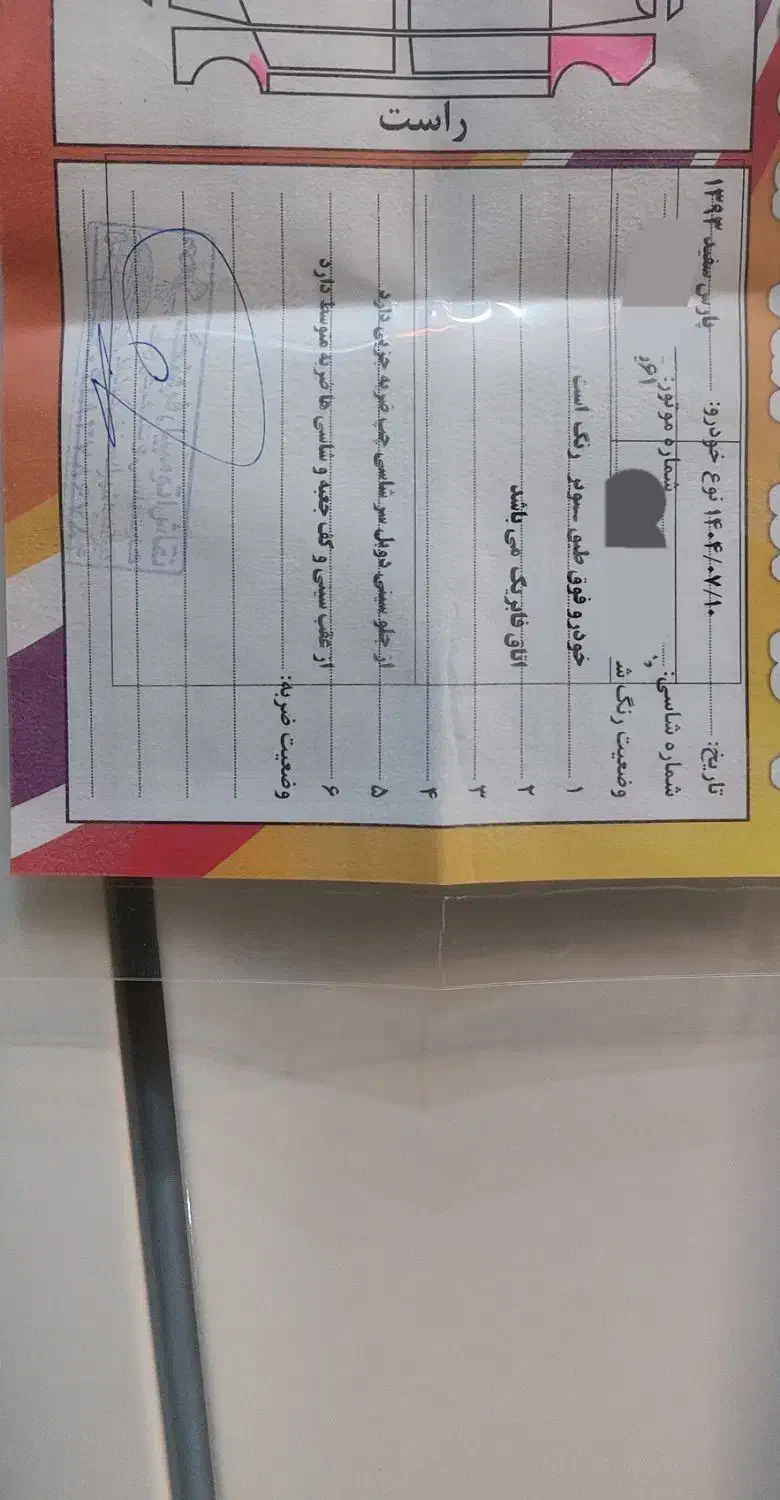 راست
تاریخ: ۱۴۰۴/۰۷/۱۰ نوع خودرو: پارس سفید ۱۳۹۳
شماره شاسی: شماره موتور:
وضعیت رنگ
۱ خودرو فوق طبق تصویر رنگ است
۲ اتاق فابریک می باشد
۳
۴
۵ از جلو سینی دوبل سر شاسی چپ ضربه جزیی دارد
۶ از عقب سینی و کف جعبه و شاسی ها ضربه متوسط دارد
وضعیت ضربه:
نقاش اتومبیل